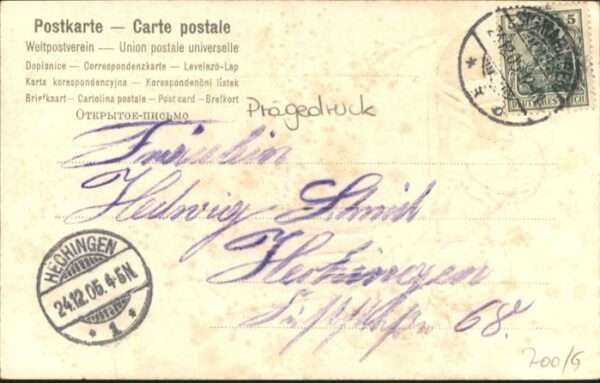 Postkarte — Carte postale
Weltpostverein — Union postale universelle
Dopisnice — Correspondenzkarte — Levelező-Lap
Karta korespondencyjna — Korespondenční lístek
Briefkaart — Cartolina postale — Post card — Brefkort
Открытое-письмо
Prägedruck
5
DEUTSCHES REICH
Fräulein
Hedwig Schmid
Hechingen
68.
HECHINGEN
24.12.05. 4-5N
* 1 *
200/G